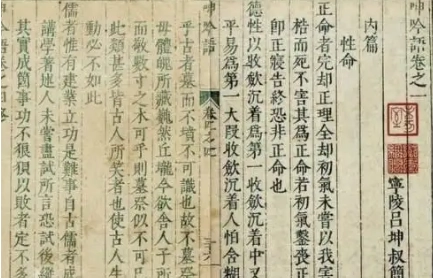 呻吟語卷之一
寧陵呂坤叔簡
內篇
性命
正命者完却正理全却初氣未嘗以我害
桎而死不害其爲正命若初氣鑿喪正
卽正寢告終恐非正命也
德性以收歛沉着爲第一收歛沉着中又
平易爲第一大段收歛沉着人怕含糊
呻吟語
乎古者墓而不墳不可識也故不墓祭
母體魄所藏巍然丘壠今欲舍人子所
而敬數寸之木可乎則墓祭似不可
此類甚多皆古人所笑者也使古人生
動必不如此
儒者惟有建業立功是難事自古儒者成
講學著述人未嘗盡試所言恐試後縱
其實成箇事功不狼狽以敗者定不多